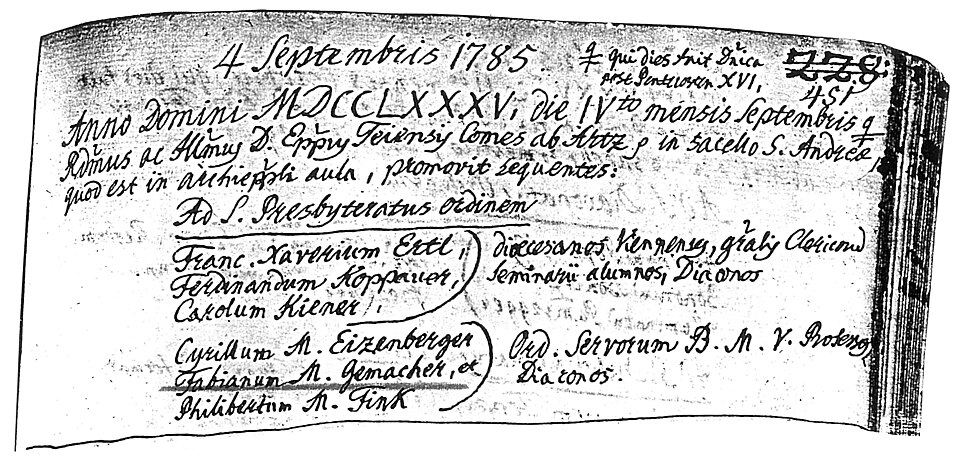 4 Septembris 1785.
qui dies fuit Dnica
post Pentecosten XVI,
228.
451
Anno Domini MDCCLXXXV, die IVto mensis Septembris
Rdmus ac Illmus D. Eppus Teiensis Comes ab Artz, in sacello S. Andreæ,
quod est in archieppli aula, promovit sequentes:
Ad S. Presbyteratus ordinem
Franc. Xaverium Ertl, diœcesanos Viennenses, gralis Clericorum
Ferdinandum Koppauer, Seminarii alumnos, Diaconos
Carolum Kiener,
Cyrillum M. Eizenberger Ord. Servorum B. M. V. Professos
Fabianum M. Gemacher, et Diaconos.
Philibertum M. Fink